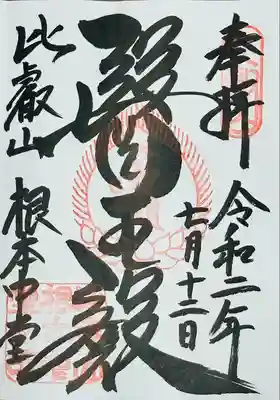 奉拝
令和二年
七月十二日
醫王殿
比叡山 根本中堂